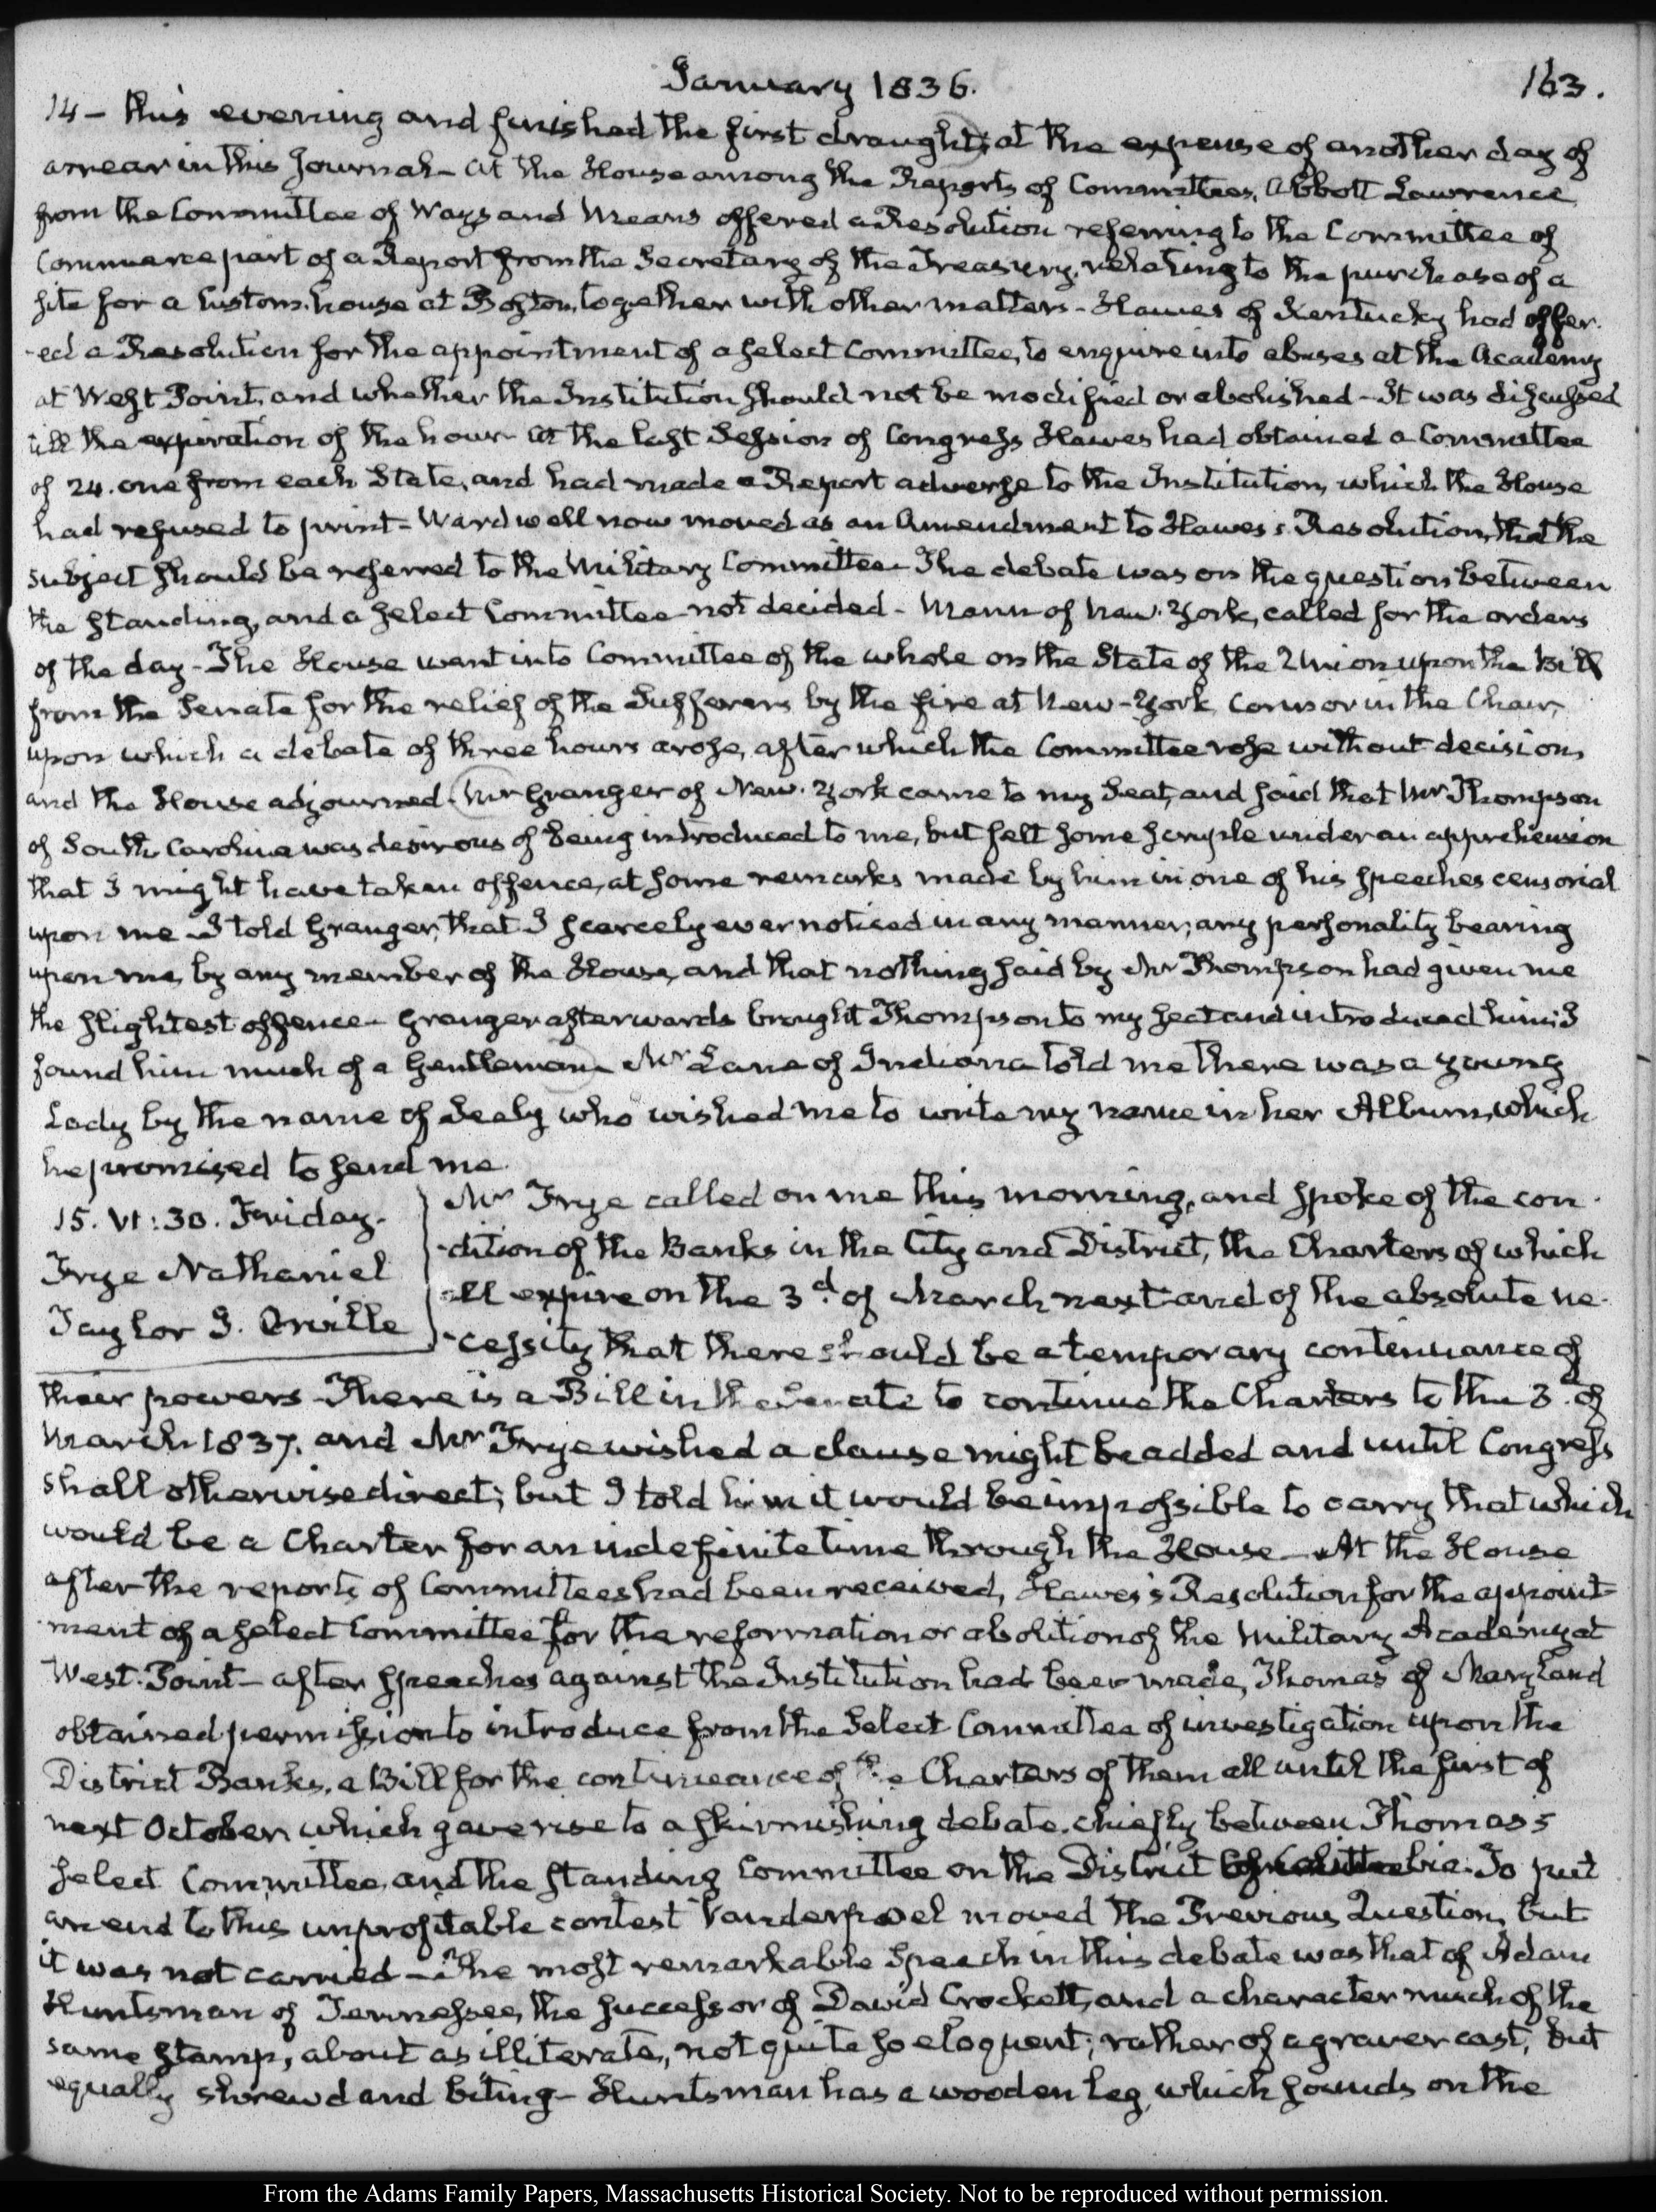 January 1836.
163.
14 - this evening and finished the first draught; at the expense of another day of
arrear in this Journal - At the House among the Reports of Committees, Abbott Lawrence
from the Committee of Ways and Means offered a Resolution referring to the Committee of
Commerce part of a Report from the Secretary of the Treasury, relating to the purchase of a
site for a Custom-house at Boston, together with other matters - Hawes of Kentucky had offer-
-ed a Resolution for the appointment of a select Committee, to enquire into abuses at the Academy
at West Point, and whether the Institution should not be modified or abolished - It was discussed
till the expiration of the hour - At the last Session of Congress Hawes had obtained a Committee
of 24. one from each State, and had made a Report adverse to the Institution, which the House
had refused to print - Wardwell now moved as an Amendment to Hawes's Resolution, that the
subject should be referred to the Military Committee - The debate was on the question between
the standing, and a select Committee - not decided - Mann of New-York, called for the orders
of the day - The House went into Committee of the whole on the State of the Union upon the Bill
from the Senate for the relief of the Sufferers by the fire at New-York, Connor in the Chair,
upon which a debate of three hours arose, after which the Committee rose without decision,
and the House adjourned - Mr Granger of New-York came to my Seat, and said that Mr Thompson
of South Carolina was desirous of being introduced to me, but felt some scruple under an apprehension
that I might have taken offence, at some remarks made by him in one of his speeches censorial
upon me - I told Granger, that I scarcely ever noticed in any manner, any personality bearing
upon me, by any member of the House, and that nothing said by Mr Thompson had given me
the slightest offence - Granger afterwards brought Thompson to my seat and introduced him; I
found him much of a Gentleman - Mr Lane of Indiana told me there was a young
Lady by the name of Sealy who wished me to write my name in her Album, which
he promised to send me.
15. VI:30. Friday.
Frye Nathaniel
Taylor J. Orville
Mr Frye called on me this morning, and spoke of the con-
-dition of the Banks in the City and District, the Charters of which
all expire on the 3d. of March next and of the absolute ne-
-cessity that there should be a temporary continuance of
their powers - There is a Bill in the Senate to continue the Charters to the 3. of
March 1837. and Mr Frye wished a clause might be added and until Congress
shall otherwise direct; but I told him it would be impossible to carry that which
would be a Charter for an indefinite time through the House - At the House
after the reports of Committees had been received, Hawes's Resolution for the appoint-
-ment of a select Committee for the reformation or abolition of the Military Academy at
West-Point - after speeches against the Institution had been made, Thomas of Maryland
obtained permission to introduce from the Select Committee of investigation upon the
District Banks, a Bill for the continuance of the Charters of them all until the first of
next October, which gave rise to a skirmishing debate, chiefly between Thomas's
select Committee, and the standing Committee on the District of Columbia. To put
an end to this unprofitable contest Vanderpoel moved the Previous Question, but
it was not carried - The most remarkable Speech in this debate was that of Adam
Huntsman of Tennessee, the successor of David Crockett, and a character much of the
same stamp, about as illiterate, not quite so eloquent; rather of a graver cast, but
equally shrewd and biting - Huntsman has a wooden leg, which sounds on the
From the Adams Family Papers, Massachusetts Historical Society. Not to be reproduced without permission.